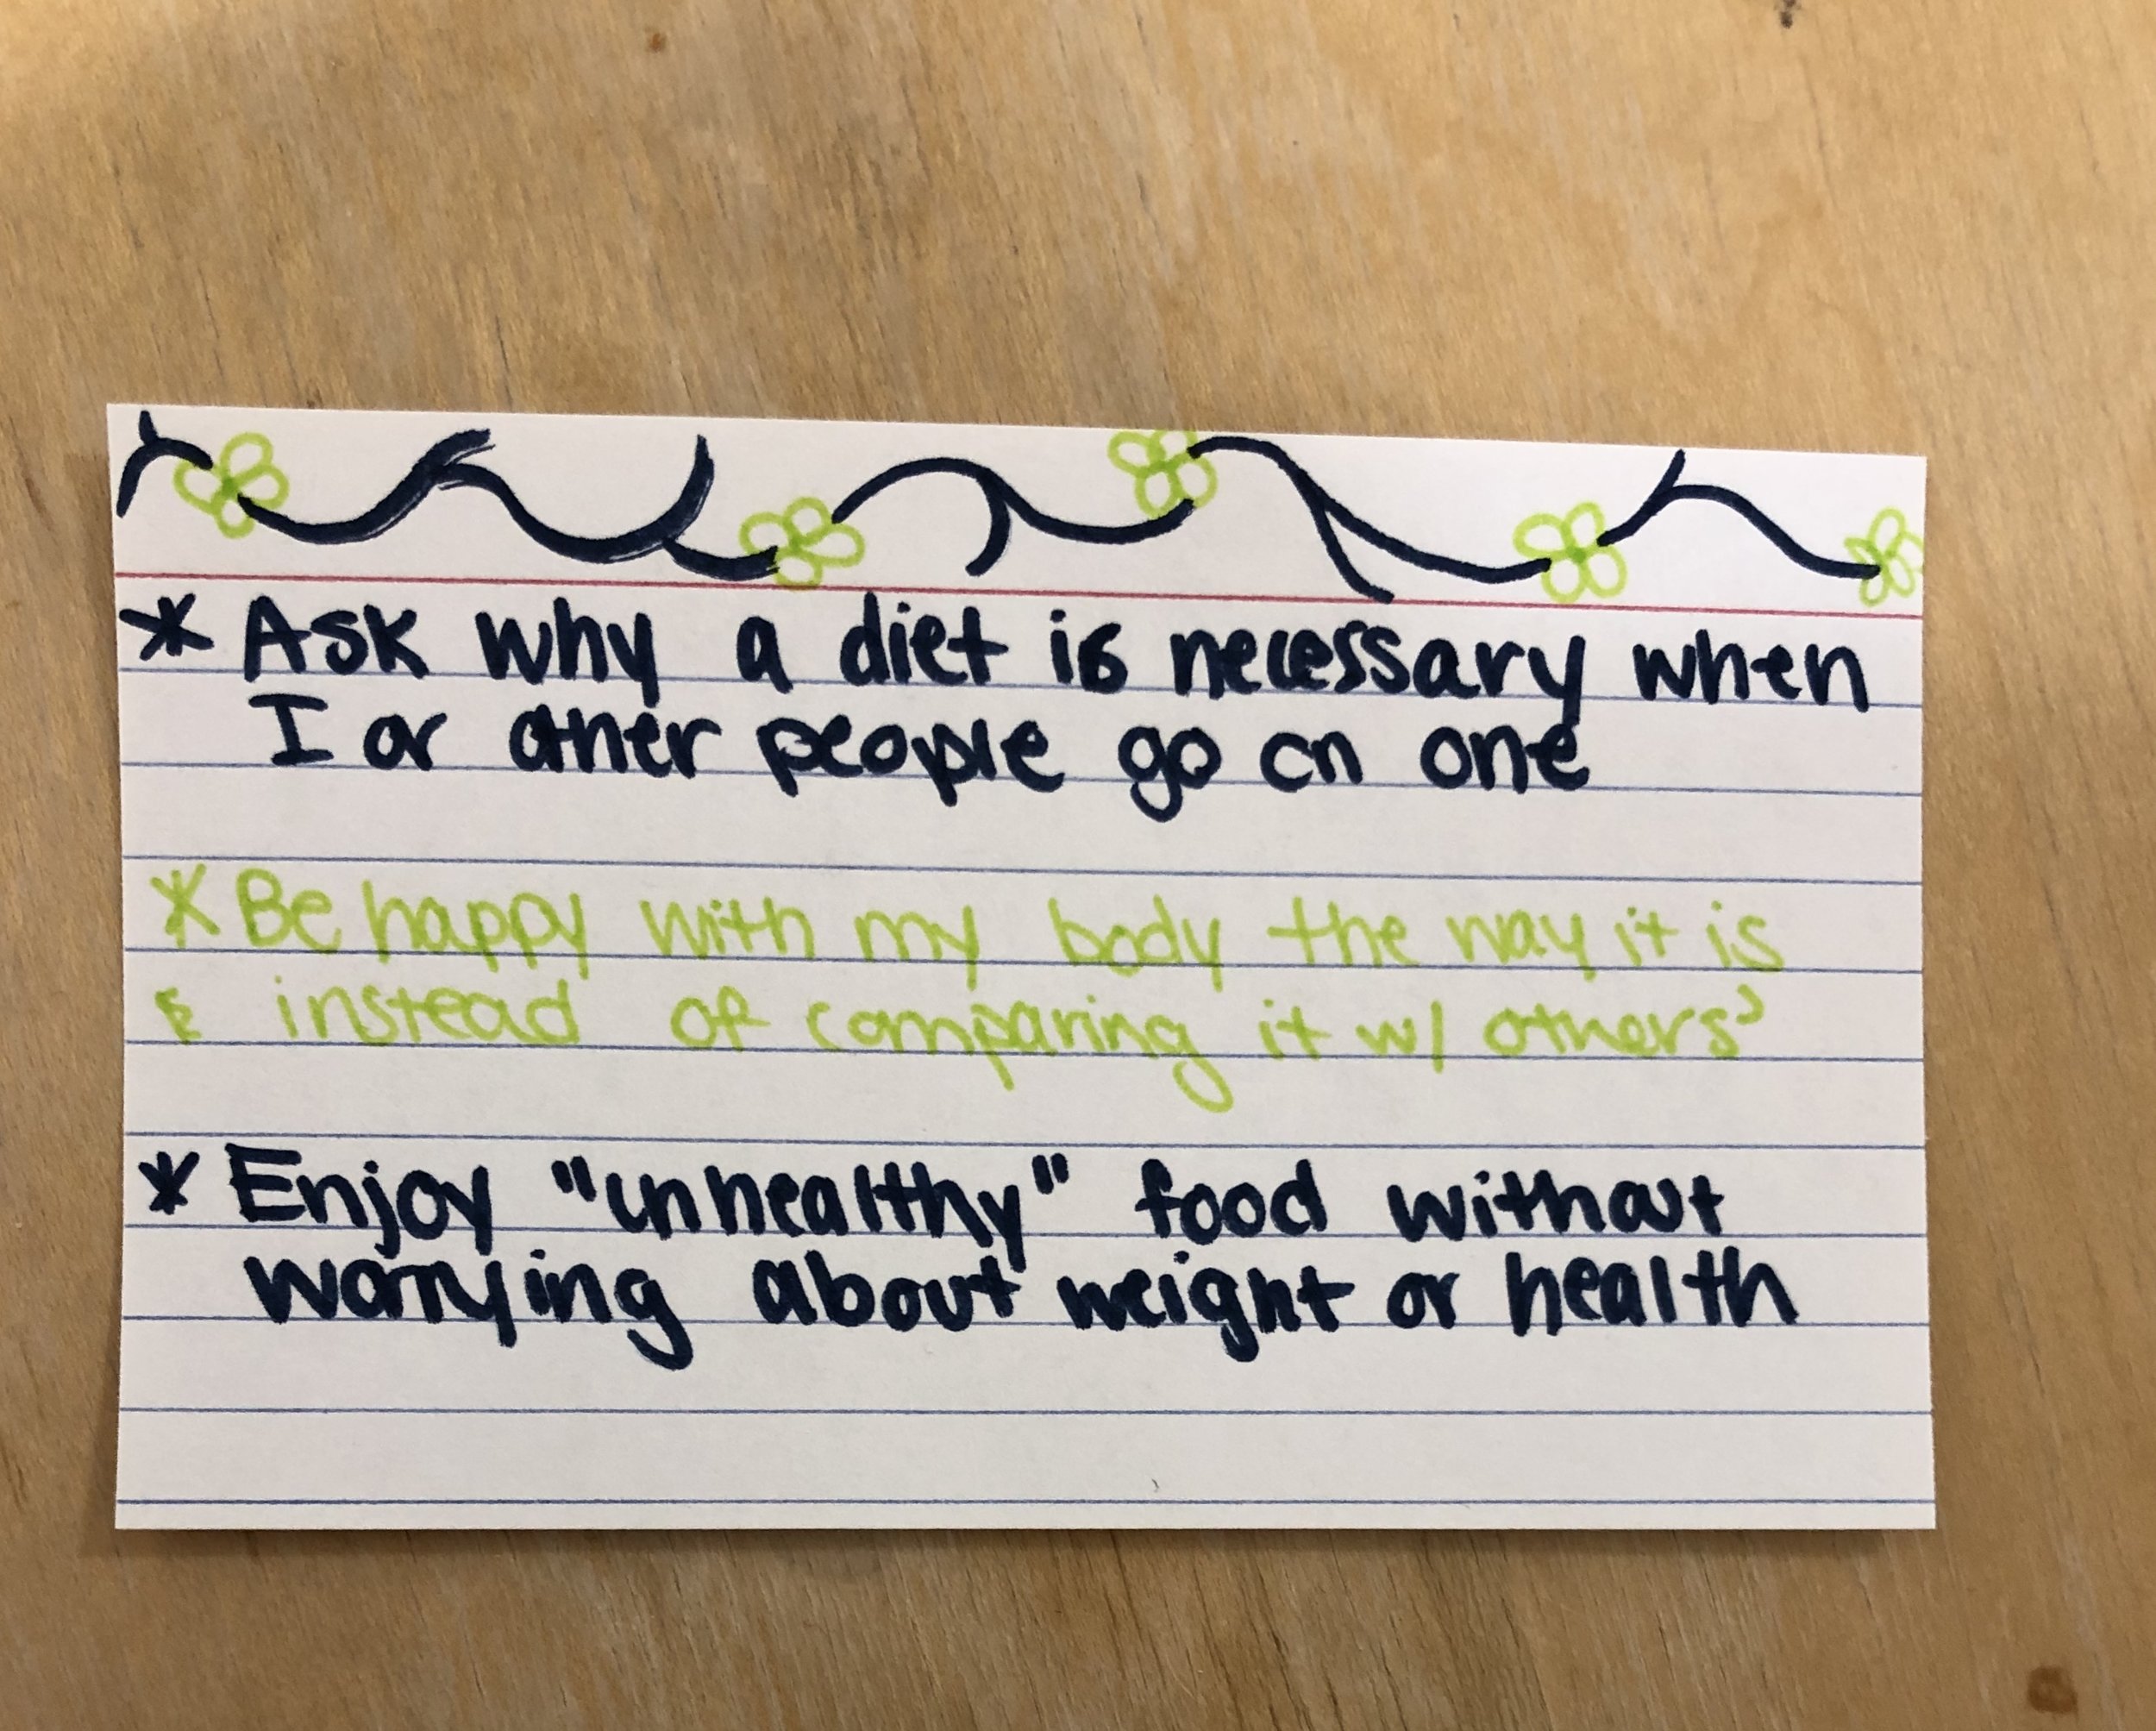 * Ask why a diet is necessary when
I or other people go on one
* Be happy with my body the way it is
& instead of comparing it w/ others'
* Enjoy "unhealthy" food without
worrying about weight or health